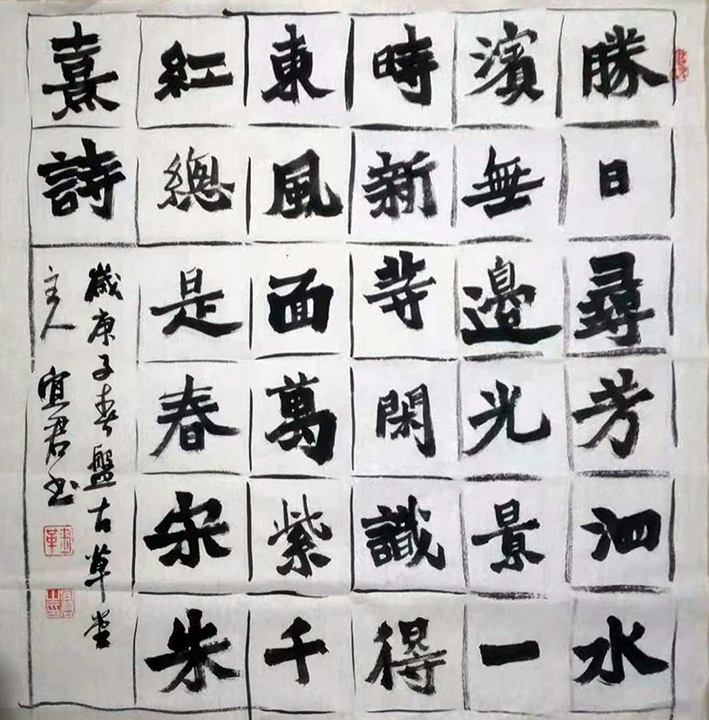 勝日尋芳泗水
濱無邊光景一
時新等閑識得
東風面萬紫千
紅總是春宋朱
熹詩
歲庚子春盤古草堂
主人宜君书